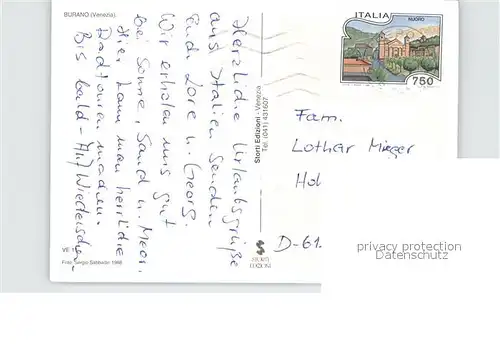 BURANO (Venezia).
Herzliche Urlaubsgrüße
aus Italien senden
Euch Lore u. Georg.
Wir erholen uns gut
bei Sonne, Sand u. Meer.
Hier kann man herrliche
Radtouren machen.
Bis bald - Auf Wiedersehen
VE 1
Foto Sergio Sabbadin 1988
Storti Edizioni - Venezia
Tel. (041) 431607
ITALIA
NUORO
750
Fam.
Lothar
Hol
D-61
privacy protection
Datenschutz